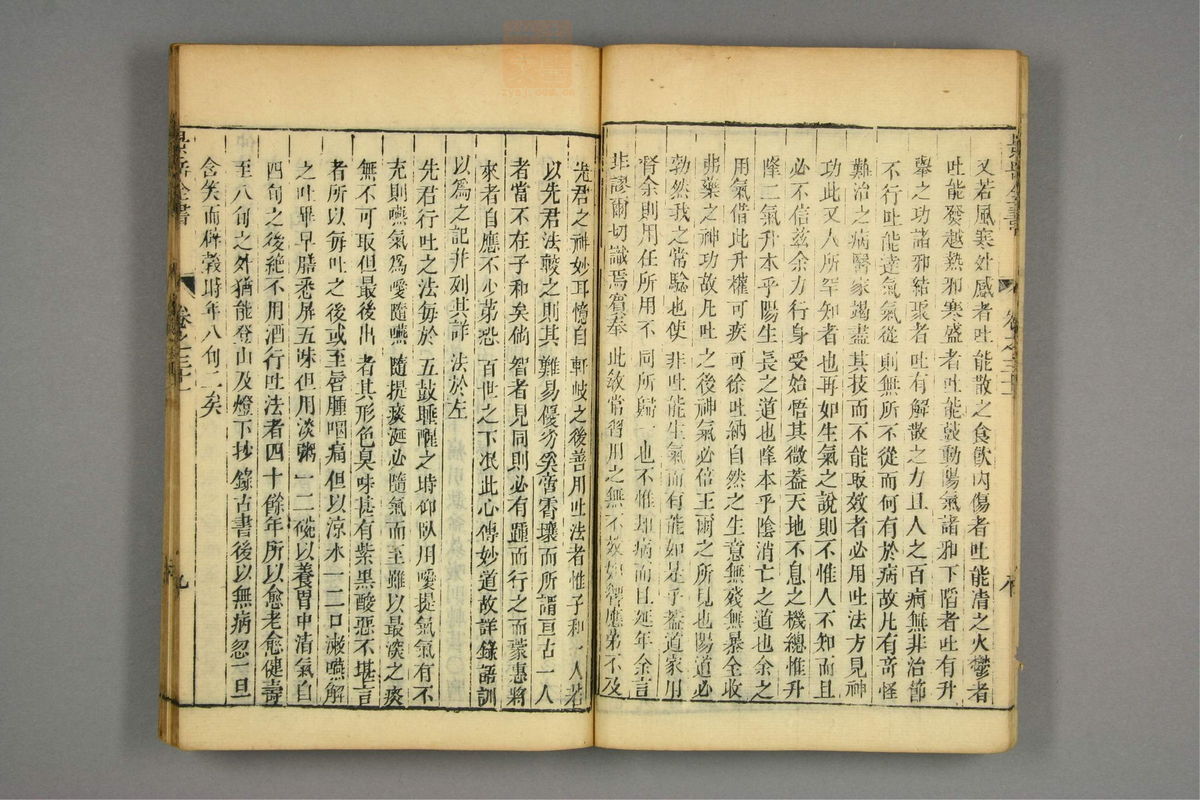 又若風寒外感者吐能散之食飲內傷者吐能清之火鬱者
吐能發越熱邪寒盛者吐能鼓動陽氣諸邪下陷者吐有升
舉之功諸邪結聚者吐有解散之方且人之百病無非治節
不行吐能達氣氣從則無所不從而何有於病故凡有奇怪
難治之病醫家竭盡其技而不能取效者必用吐法方見神
功此又人所罕知者也再如生氣之說則不惟人不知而且
必不信茲余力行身受始悟其微蓋天地不息之機總惟升
降二氣升本乎陽生長之道也降本乎陰消亡之道也余之
用氣借此升權可疾可徐吐納自然之生意無殘無暴全收
弗藥之神功故凡吐之後神氣必倍王爾之所見也陽道必
勃然我之常驗也使非吐能生氣而有能如是乎蓋道家用
督余則用任所用不同所歸一也不惟却病而且延年余言
非謬爾切識焉賓奉此敎常習用之無不效如響應第不及
先君之神妙耳憶自軒岐之後善用吐法者惟子和一人若
以先君法較之則其難易優劣奚啻霄壤而所謂亘古一人
者當不在子和矣倘智者見同則必有踵而行之而蒙惠將
來者自應不少第恐百世之下泯此心傳妙道故詳錄語訓
以爲之記幷列其詳法於左
先君行吐之法每於五鼓睡醒之時仰臥用噯提氣氣有不
充則嚥氣爲噯隨嚥隨提痰涎必隨氣而至雖以最深之痰
無不可取但最後出者其形色臭味甚有紫黑酸惡不堪言
者所以每吐之後或至唇腫咽痛但以涼水一二口漱嚥解
之吐畢早膳悉屏五味但用淡粥一二碗以養胃中清氣自
四旬之後絶不用酒行吐法者四十餘年所以愈老愈健壽
至八旬之外猶能登山及燈下抄錄古書後以無病忽一旦
含笑而辭榖時年八旬二矣
景岳全書
卷之三十一
九